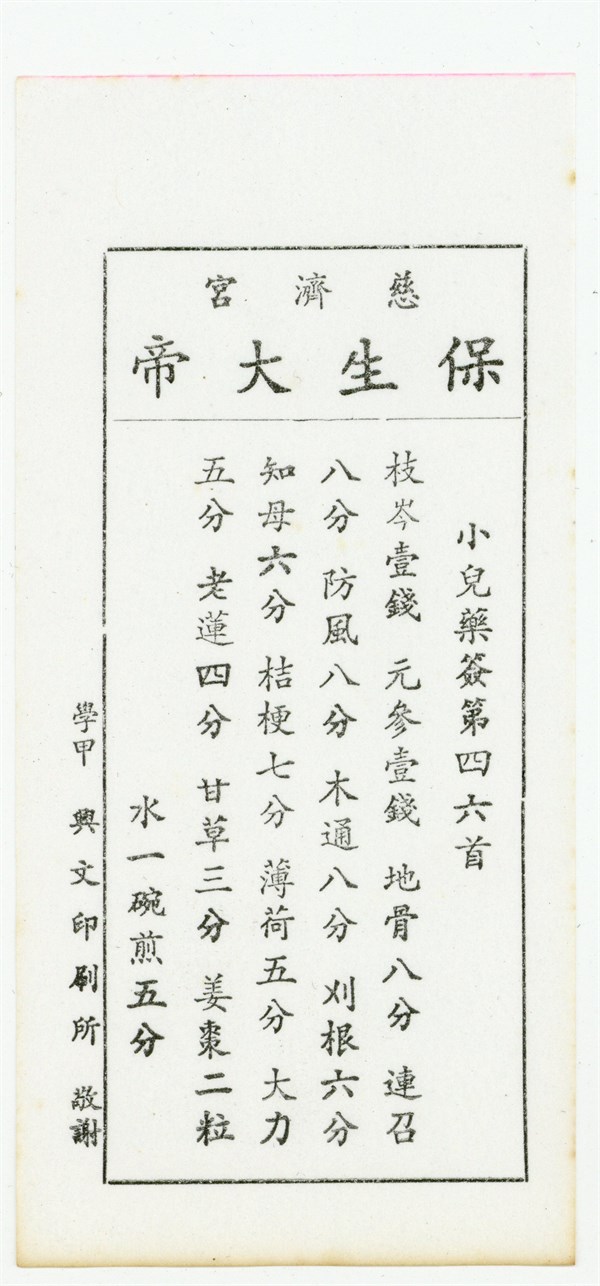 慈濟宮
保生大帝
小兒藥簽第四六首
枝岑壹錢 元參壹錢 地骨八分 連召
八分 防風八分 木通八分 刈根六分
知母六分 桔梗七分 薄荷五分 大力
五分 老蓮四分 甘草三分 姜棗二粒
水一碗煎五分
學甲 興文印刷所 敬謝